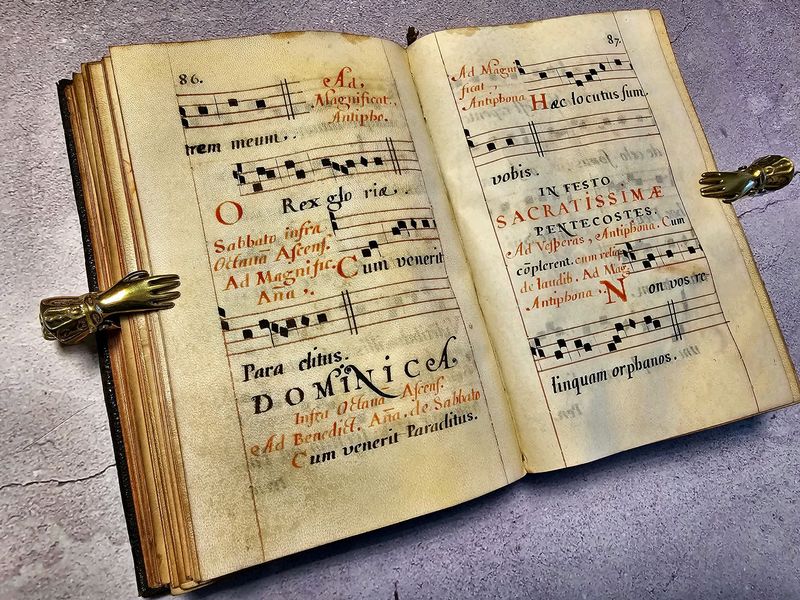 86.
Ad,
Magnificat,
Antipho.
trem meum.
O Rex glo riæ.
Sabbato infra
Octauã Ascens.
Ad Magnific.
Aña.
Cum venerit
Para clitus.
DOMINICA
Infra Octauã Ascens.
Ad Benedict. Aña. de Sabbato
Cum venerit Paraclitus.
87.
Ad Magni
ficat,
Antiphona Hæc locutus sum.
vobis.
IN FESTO
SACRATISSIMÆ
PENTECOSTES.
Ad Vesperas, Antiphona. Cum
cõplerent. cum reliq.
de laudib. Ad Mag.
Antiphona. Non vos re
linquam orphanos.